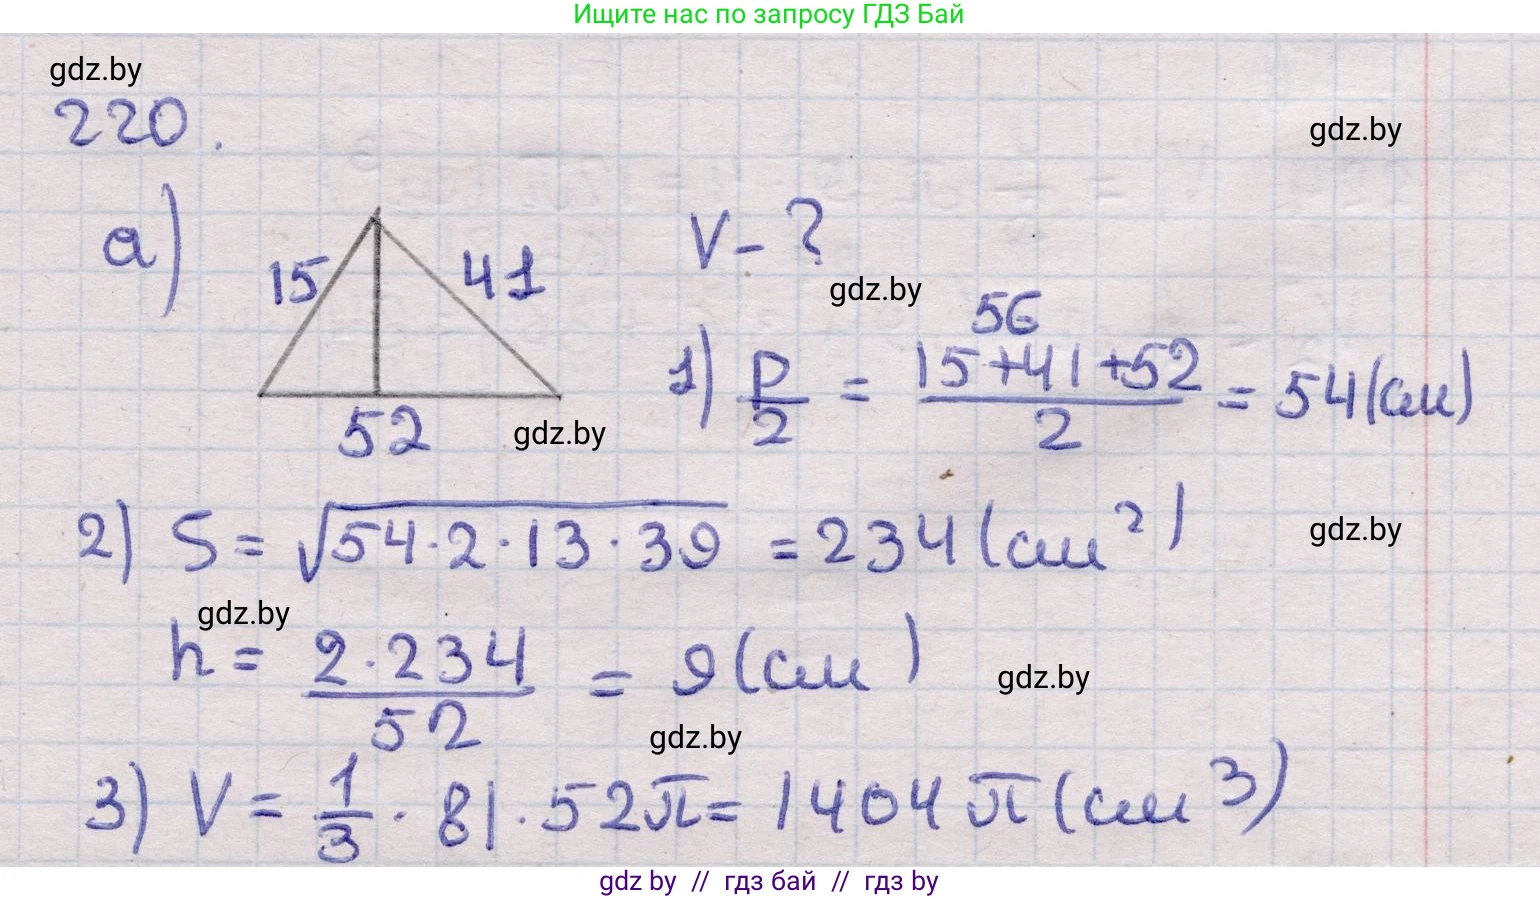 Ищите нас по запросу ГДЗ Бай
gdz.by
220.
gdz.by
а)
15
41
V - ?
gdz.by
56
1) p/2 = (15+41+52)/2 = 54 (см)
52
gdz.by
2) S = √54·2·13·39 = 234 (см²)
gdz.by
gdz.by
h = (2·234)/52 = 9 (см)
gdz.by
gdz.by
3) V = 1/3 · 81 · 52π = 1404 π (см³)
gdz by // гдз бай // гдз by